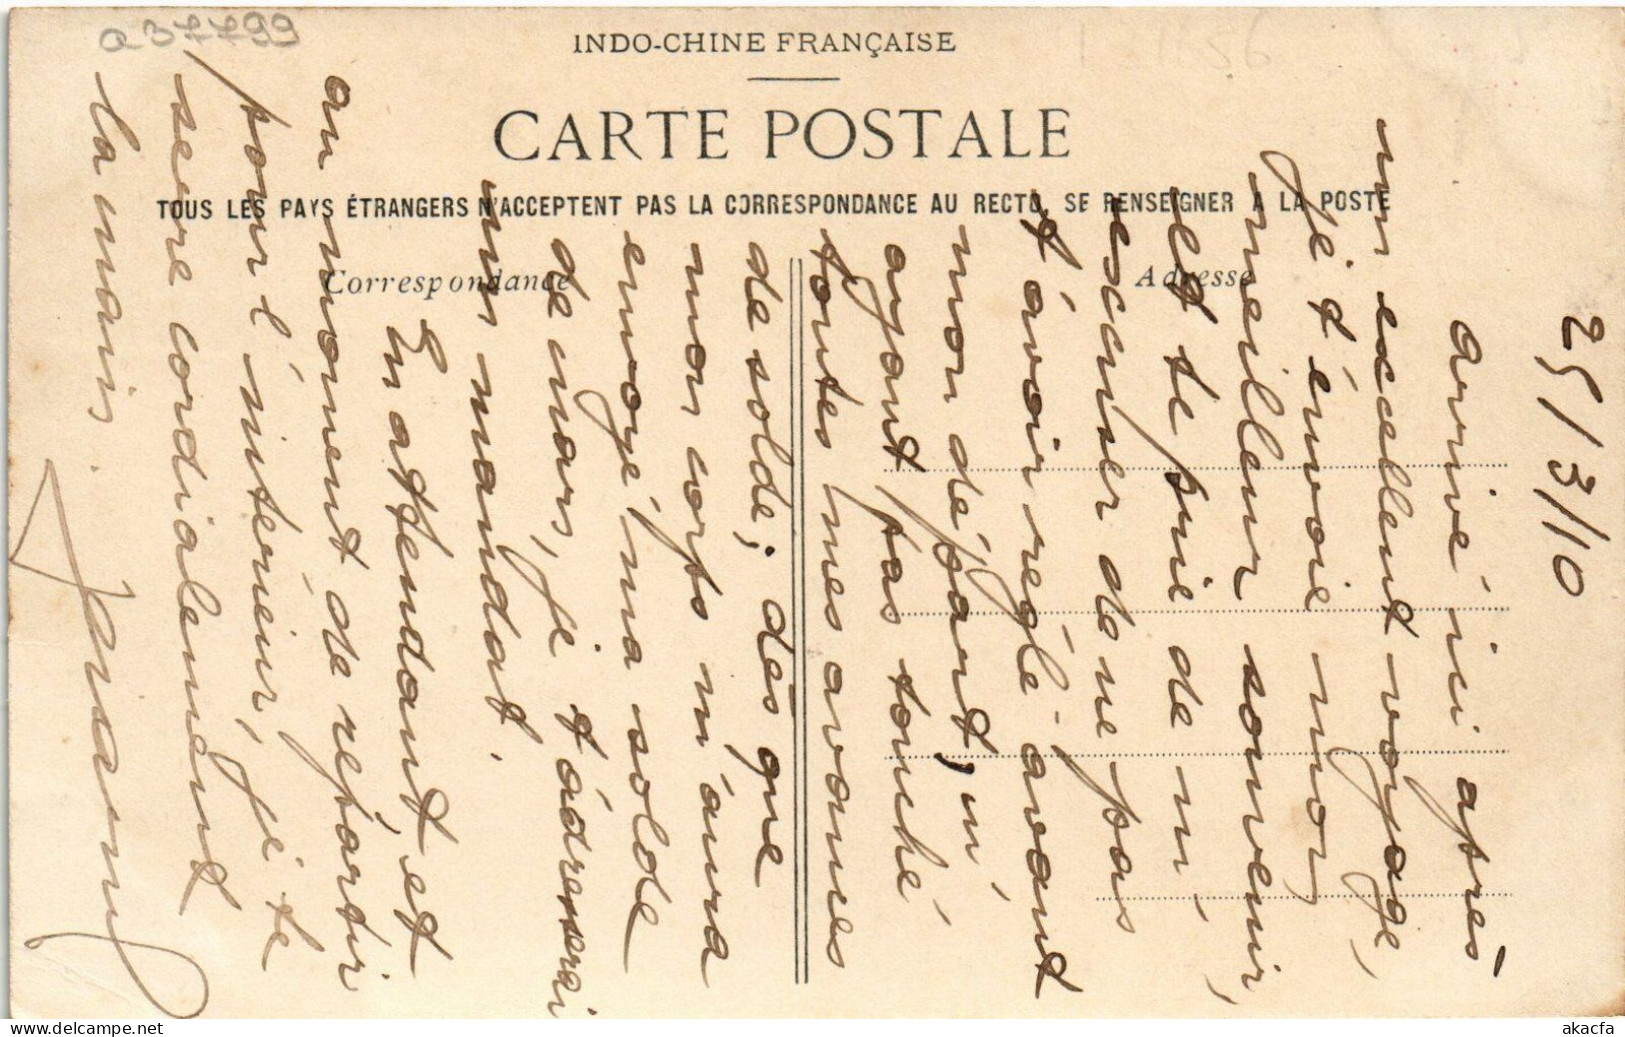 a37799
INDO-CHINE FRANÇAISE
CARTE POSTALE
TOUS LES PAYS ÉTRANGERS N'ACCEPTENT PAS LA CORRESPONDANCE AU RECTO, SE RENSEIGNER A LA POSTE
Correspondance
Adresse
25/3/10
Arrivé ici après
un excellent voyage,
je t'envoie mon
meilleur souvenir,
et te prie de m'
escuser de ne pas
t'avoir réglé avant
mon départ, n'
ayant pas touché
toutes mes avances
de solde; dès que
mon corps m'aura
envoyé ma solde
de mars, je t'adresserai
un mandat.
En attendant, et
au moment de repartir
pour l'intérieur, je te
serre cordialement
la main.
delcampe.net
akacfa